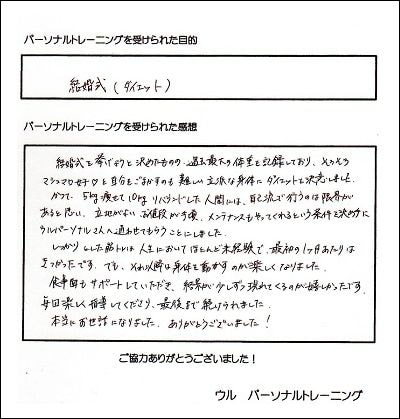 パーソナルトレーニングを受けられた目的
結婚式(ダイエット)
パーソナルトレーニングを受けられた感想
結婚式を挙げようと決めたものの、過去最大の体重を記録しており、そろそろ
マシュマロ女子♡と自分をごまかすのも難しい立派な身体にダイエットを決意しました。
かつて、5kg痩せて10kgリバウンドした人間には、自己流で行うのは限界が
あると思い、立地がよい、お値段が手頃、メンテナンスもやってくれるという条件を決め手に
ウルパーソナルさんへ通わせてもらうことにしました。
しっかりした筋トレは人生においてほとんど未経験で、最初の1ヶ月あたりは
きつかったです。でも、それ以降は身体を動かすのが楽しくなりました。
食事面もサポートしていただき、結果が少しずつ現れてくるのが嬉しかったです。
毎回楽しく指導してくださり、最後まで続けられました。
本当にお世話になりました。ありがとうございました!
ご協力ありがとうございました!
ウル パーソナルトレーニング